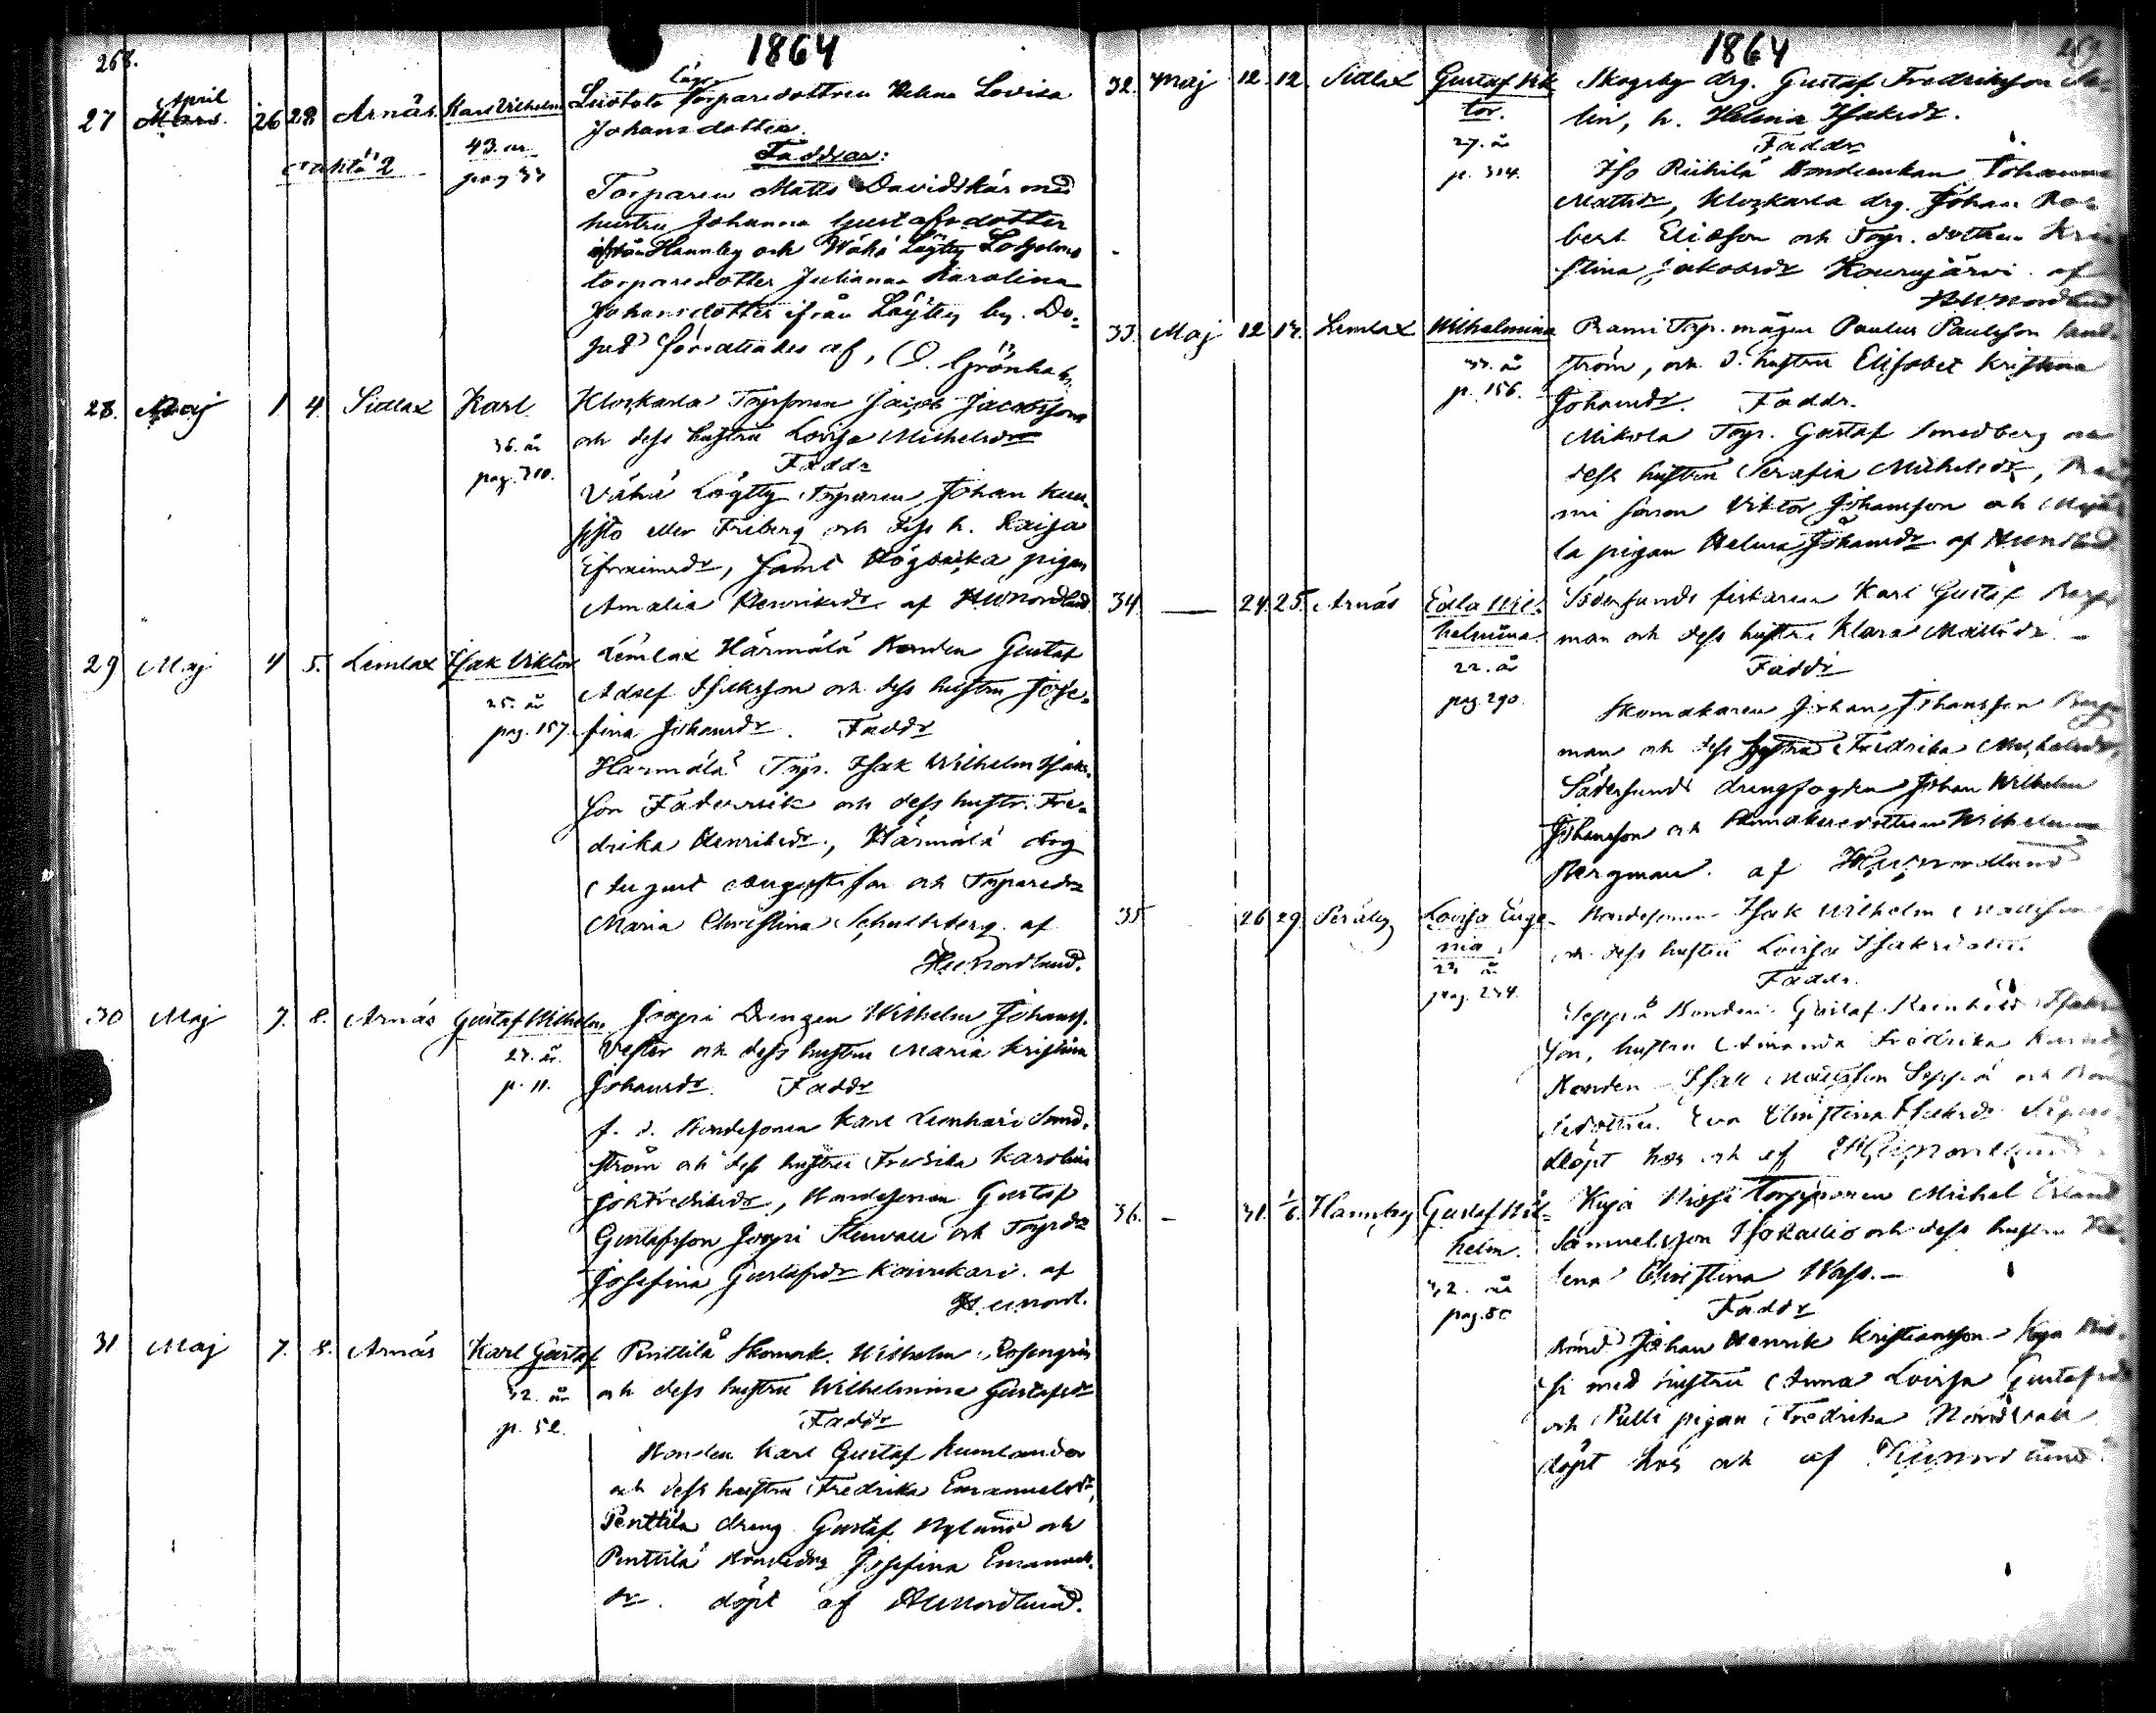 268.
1864
27 April 26 28 Arnäs. Karl Vilhelm Lustola Torparedottren Helena Lovisa
Mars.
43. år Johansdotter.
oäkta 2 pag 33 Faddrar:
Torparen Matts Davidskär med
hustru Johanna Gustafsdotter
ifrån Hannby och Wähä Löytty
torparedotter Julianna Karolina
Johansdotter ifrån Löytty by. Do-
pet förrättades af,
28. Maj 1 4. Sidlax Karl Kloskarla Torpsonen Jacob Jacobsson
36. år och dess hustru Lovisa Michelsdr
pag. 310. Faddr
Vähä Löytty Torparen Johan Kun-
sisto eller Friberg och dess h. Kaisa
Efraimsdr, samt pigan
Amalia Henriksdr af HWNordlund
29 Maj 4 5. Lemlax Isak Viktor Lemlax Härmälä Bonden Gustaf
25. år Adolf Isaksson och dess hustru Jose-
pag. 157. fina Johansdr. Faddr
Härmälä Torp. Isak Wilhelm Isaks-
son och dess hustru Fre-
drika Henriksdr., Härmälä drg
August Augustsson och Torparedr
Maria Christina Schultsberg af
HWNordlund.
30 Maj 7. 8. Arnäs Gustaf Wilhelm Joopi Drengen Wilhelm Johanss.
27. år. Vester och dess hustru Maria Kristina
p. 11. Johansdr. Faddr
f. d. Bondesonen Karl Leonhard Sund-
ström och dess hustru Fredrika Karolina
Johfredriksdr, Bondesonen Gustaf
Gustafsson Joopi och Torpdr
Josefina Gustafsdr Kouvukari. af
H. W Nordl.
31 Maj 7. 8. Arnäs Karl Gustaf Penttilä Skomak. Wilhelm Rosengren
32. år och dess hustru Wilhelmina Gustafsdr
p. 52. Faddr
Bonden Karl Gustaf Kumlander
och dess hustru Fredrika Emanuelsdr,
Penttilä dreng Gustaf Nylund och
Penttilä Bondedr Josefina Emanuels-
dr. döpt af HWNordlund.
1864
269
32. Maj 12. 12. Sidlax Gustaf Vik- Skogsby drg. Gustaf Fredriksson
tor. lin, h. Helena Isaksdr.
27. år Faddr
p. 314. Iso Riihilä Bondeenkan Johanna
Mattsdr, Kloskarla drg. Johan Ro-
bert Eliasson och Torp. dottren Kri-
stina Jakobsdr Kourujärvi. af
HWNordlund
33. Maj 12 12. Lemlax Wilhelmina Rami Torp. mågen Paulus Paulsson Sand-
33. år ström, och d. hustru Elisabet Kristina
p. 156. Johansdr. Faddr.
Mikola Torp. Gustaf Smedberg och
dess hustru Serafia Michelsdr,
mi sonen Viktor Johansson och
la pigan Helena Johansdr af
34. — 24. 25. Arnäs Edla Wil- Södersunds fiskaren Karl Gustaf Berg-
helmina man och dess hustru Klara Mattsdr. -
22. år Faddr
pag. 290. Skomakaren Johan Johansson Berg-
man och dess hustru Fredrika Michelsdr,
Södersunds drengfogden Johan Wilhelm
Johansson och Skomakaredottren Wilhelmina
Bergman. af HWNordlund
35 26 29 Peräby Lovisa Euge- Bondesonen Isak Wilhelm Mattsson
nia. och dess hustru Lovisa Isaksdotter.
23 år Faddr.
pag. 234. Seppä Bonden Gustaf Reinhold Isaks-
son, hustru Amanda Fredrika
Bonden Isak Mattsson Seppä och Bon-
dedottren Eva Christina Isaksdr
döpt hos och af HWNordlund
36. — 31. 1/6. Hannby Gustaf Wil- Torpparen Michel Erland
helm. Samuelsson Isokallio och dess hustru He-
32. år lena Christina Wass. -
pag. 80 Faddr
Bond. Johan Henrik Kristiansson
si med hustru Anna Lovisa Gustafsdr
och Pulli pigan Fredrika
döpt hos och af HWNordlund.